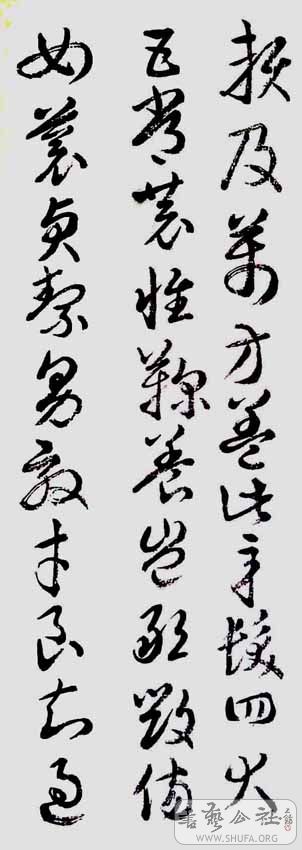 賴及萬方蓋此身髮四大
五常恭惟鞠養豈敢毀傷
女慕貞絜男效才良知過
書藝公社
WWW.SHUFA.ORG